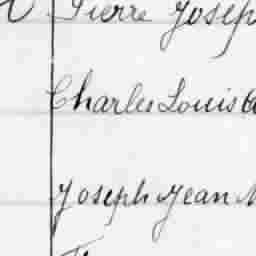 Pierre Josep
Charles Louis
Joseph Jean